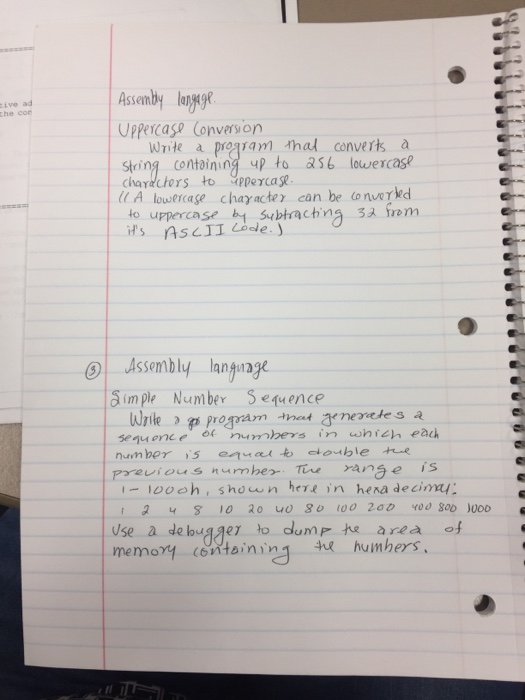 tive ad
the con
Assembly langage.
Uppercase Conversion
Write a program that converts a
string containing up to 256 lowercase
characters to uppercase.
(( A lowercase character can be converted
to uppercase by subtracting 32 from
it's ASCII Code.)
③ Assembly language
Simple Number Sequence
Write a program that generates a
sequence of numbers in which each
number is equal to double the
previous number. The range is
1-1000h, shown here in hexadecimal:
1 2 4 8 10 20 40 80 100 200 400 800 1000
Use a debugger to dump the area of
memory containing the numbers.